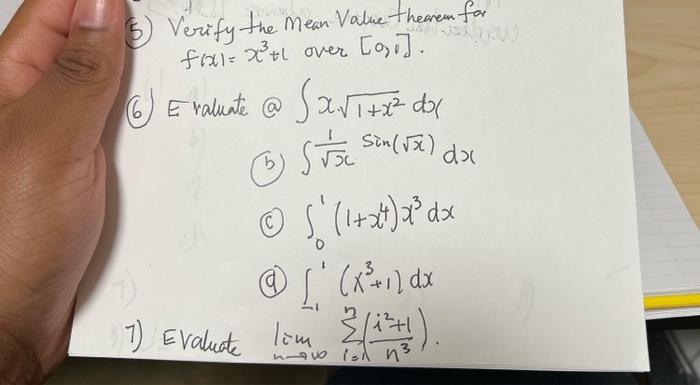 5) Verify the Mean Value theorem for
f(x) = x³+1 over [0,1].
6) Evaluate (a) ∫ x√(1+x²) dx
(b) ∫ 1/√x sin(√x) dx
(c) ∫₀¹ (1+x⁴)x³ dx
(d) ∫₋₁¹ (x³+1) dx
7) Evaluate lim n→∞ Σᵢ₌₁ⁿ ((i²+1)/n³).